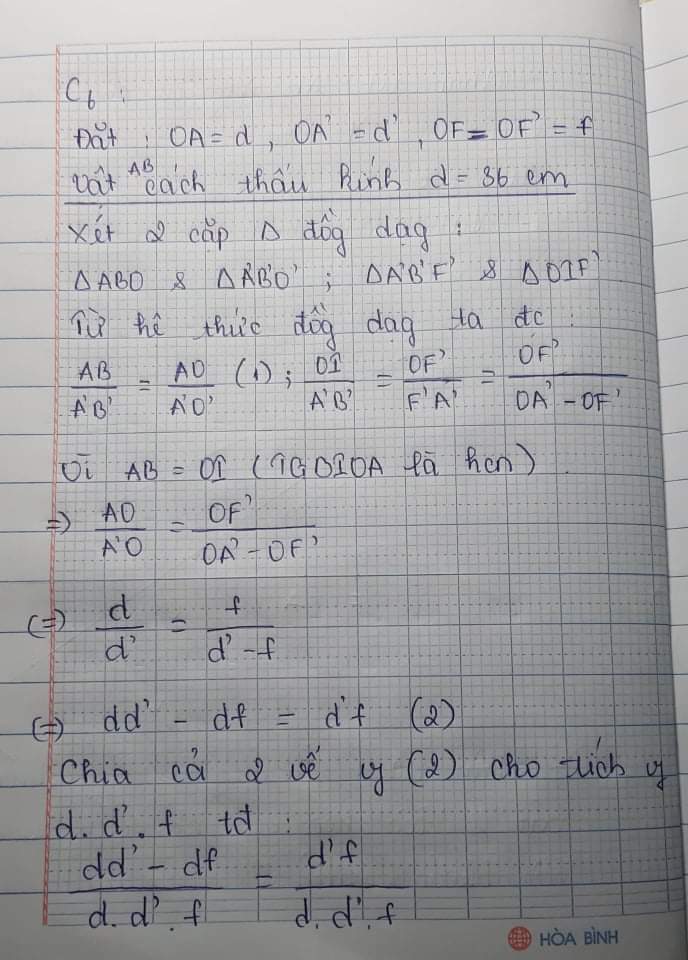 C6 :
Đặt : OA = d , OA' = d' , OF = OF' = f
Vật AB cách thấu kính d = 36 cm
Xét 2 cặp Δ đồg dạg :
ΔABO & ΔA'B'O' ; ΔA'B'F' & ΔOIF'
Từ hệ thức đồg dạg ta đc :
AB/A'B' = AO/A'O' (1) ; OI/A'B' = OF'/F'A' = OF'/OA' - OF'
Vì AB = OI (TGOIOA là hcn)
=> AO/A'O = OF'/OA' - OF'
(=) d/d' = f/d' - f
(=) dd' - df = d'f (2)
Chia cả 2 vế vy (2) cho tích vy
d. d'. f tđ :
dd' - df/d. d'. f = d'f/d. d'. f
HÒA BÌNH